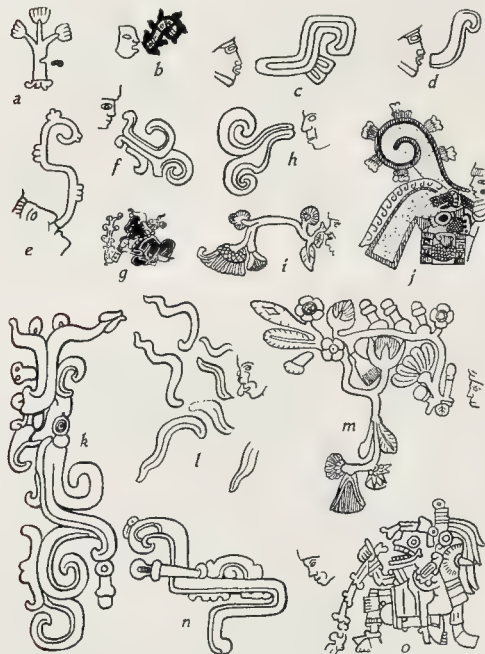 a
b
c
d
e
f
g
h
i
j
k
l
m
n
o